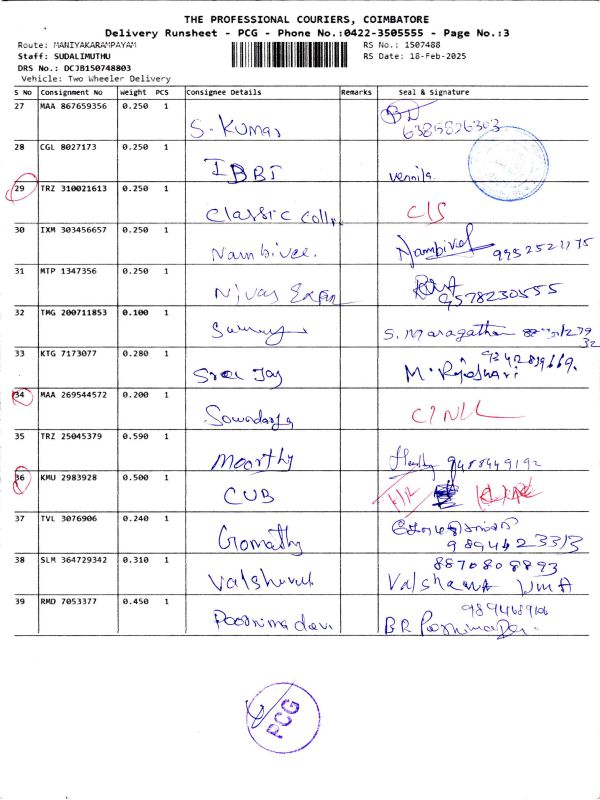 THE PROFESSIONAL COURIERS, COIMBATORE
Delivery Runsheet - PCG - Phone No.:0422-3505555 - Page No.:3
Route: MANIYAKARAMPAYAM RS No.: 1507488
Staff: SUDALIMUTHU RS Date: 18-Feb-2025
DRS No.: DCJB150748803
Vehicle: Two Wheeler Delivery
S No Consignment No Weight PCS Consignee Details Remarks Seal & Signature
27 MAA 867659356 0.250 1
S. Kumar 6385826303
28 CGL 8027173 0.250 1
IBBI vennila.
29 TRZ 310021613 0.250 1
Classic Colln C/S
30 IXM 303456657 0.250 1
Nambivel. Nambivel 9952521175
31 MTP 1347356 0.250 1
Nivas 9578230555
32 TMG 200711853 0.100 1
S. Maragatha
33 KTG 7173077 0.280 1
Sree Jay M. Rajeshwari
34 MAA 269544572 0.200 1
Sowndarya
35 TRZ 25045379 0.590 1
Moorthy 9488449192
36 KMU 2983928 0.500 1
CUB
37 TVL 3076906 0.240 1
Gomathy
38 SLM 364729342 0.310 1
8870808893
UMA
39 RMD 7053377 0.450 1
Poornima devi
PCG